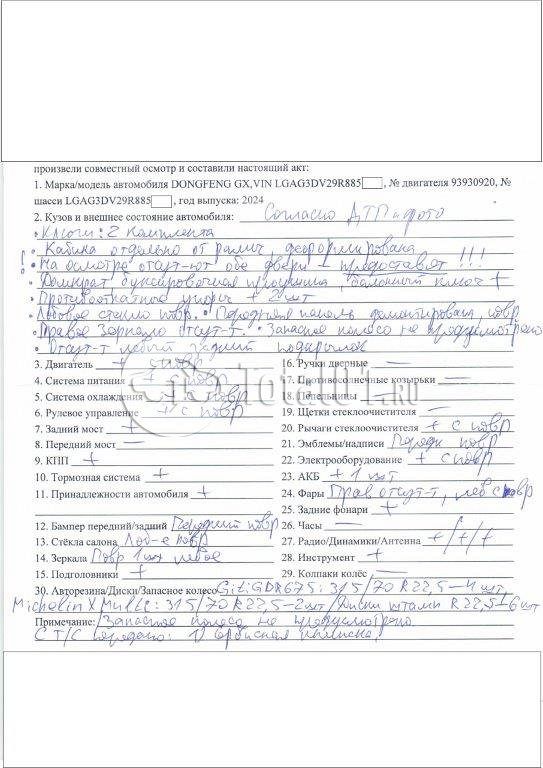 произвели совместный осмотр и составили настоящий акт:
1. Марка/модель автомобиля DONGFENG GX,VIN LGAG3DV29R885, № двигателя 93930920, №
шасси LGAG3DV29R885, год выпуска: 2024
2. Кузов и внешнее состояние автомобиля: Согласно ДТП и фото
• Ключи: 2 комплекта
• Кабина отдельно от рамы, деформирована
• На осмотре отсут-ют обе двери - предоставят !!!
• Домкрат буксировочная проушина балонный ключ +
• Противооткатные упоры + 2 шт
• Лобовое стекло повр. • Передняя панель демонтирована, повр
• Правое зеркало отсут-т. • Запасное колесо не предусмотрено
• Отсут-т левый задний подкрылок
3. Двигатель + с повр
4. Система питания + с повр
5. Система охлаждения + с повр
6. Рулевое управление + с повр
7. Задний мост +
8. Передний мост —
9. КПП +
10. Тормозная система +
11. Принадлежности автомобиля +
12. Бампер передний/задний Передний повр
13. Стёкла салона Лоб-е повр
14. Зеркала Повр 1 шт левое
15. Подголовники +
16. Ручки дверные —
17. Противосолнечные козырьки —
18. Пепельницы —
19. Щетки стеклоочистителя —
20. Рычаги стеклоочистителя + с повр
21. Эмблемы/надписи Передн повр
22. Электрооборудование + с повр
23. АКБ + 1 шт
24. Фары Прав отсут-т, лев с повр
25. Задние фонари +
26. Часы —
27. Радио/Динамики/Антенна +/+/+
28. Инструмент +
29. Колпаки колёс —
30. Авторезина/Диски/Запасное колесо Giti GDR675: 315/70 R22,5 - 4 шт,
Michelin X Multi: 315/70 R22,5 - 2 шт / Диски штамп R22,5 - 6 шт
Примечание: Запасное колесо не предусмотрено
С ТС передано: 1) Сервисная книжка